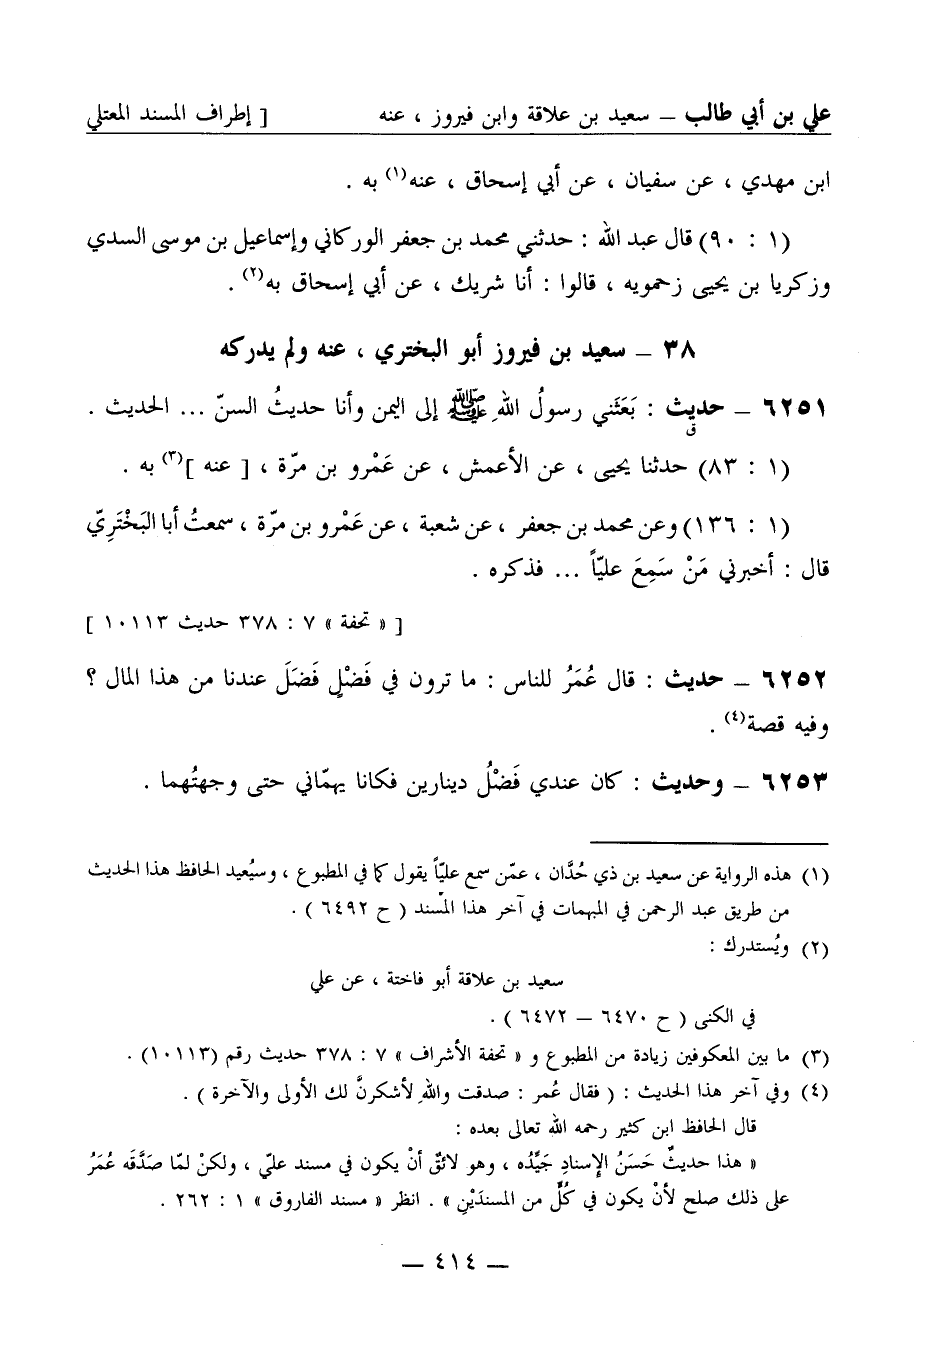 علي بن أبي طالب – سعيد بن علاقة وابن فيروز ، عنه [ إطراف المسند المعتلي
ابن مهدي ، عن سفيان ، عن أبي إسحاق ، عنه(١) به .
(١ : ٩٠) قال عبد الله : حدثني محمد بن جعفر الوركاني وإسماعيل بن موسى السدي
وزكريا بن يحيى زحمويه ، قالوا : أنا شريك ، عن أبي إسحاق به(٢) .
٣٨ – سعيد بن فيروز أبو البختري ، عنه ولم يدركه
٦٢٥١ – حديث : بَعَثَني رسولُ اللهِ ﷺ إلى اليمن وأنا حديثُ السنّ ... الحديث .
ق
(١ : ٨٣) حدثنا يحيى ، عن الأعمش ، عن عَمْرو بن مرّة ، [ عنه ](٣) به .
(١ : ١٣٦) وعن محمد بن جعفر ، عن شعبة ، عن عَمْرو بن مرّة ، سمعتُ أبا البَخْتَرِيّ
قال : أخبرني مَنْ سَمِعَ عليّاً ... فذكره .
[ « تحفة » ٧ : ٣٧٨ حديث ١٠١١٣ ]
٦٢٥٢ – حديث : قال عُمَرُ للناس : ما ترون في فَضْلٍ فَضَلَ عندنا من هذا المال ؟
وفيه قصة(٤) .
٦٢٥٣ – وحديث : كان عندي فَضْلُ دينارين فكانا يهمّاني حتى وجهتُهما .
(١) هذه الرواية عن سعيد بن ذي حُدَّان ، عمّن سمع عليّاً يقول كما في المطبوع ، وسيُعيد الحافظ هذا الحديث
من طريق عبد الرحمن في المبهمات في آخر هذا المسند ( ح ٦٤٩٢ ) .
(٢) ويُستدرك :
سعيد بن علاقة أبو فاختة ، عن علي
في الكنى ( ح ٦٤٧٠ – ٦٤٧٢ ) .
(٣) ما بين المعكوفين زيادة من المطبوع و « تحفة الأشراف » ٧ : ٣٧٨ حديث رقم (١٠١١٣) .
(٤) وفي آخر هذا الحديث : ( فقال عُمر : صدقت واللهِ لأشكرنَّ لك الأولى والآخرة ) .
قال الحافظ ابن كثير رحمه الله تعالى بعده :
« هذا حديثٌ حَسَنُ الإسنادِ جَيِّدُه ، وهو لائقٌ أنْ يكون في مسند عليّ ، ولكنْ لمّا صَدَّقَه عُمَرُ
على ذلك صلح لأنْ يكون في كُلٍّ من المسندَيْنِ » . انظر « مسند الفاروق » ١ : ٢٦٢ .
– ٤١٤ –